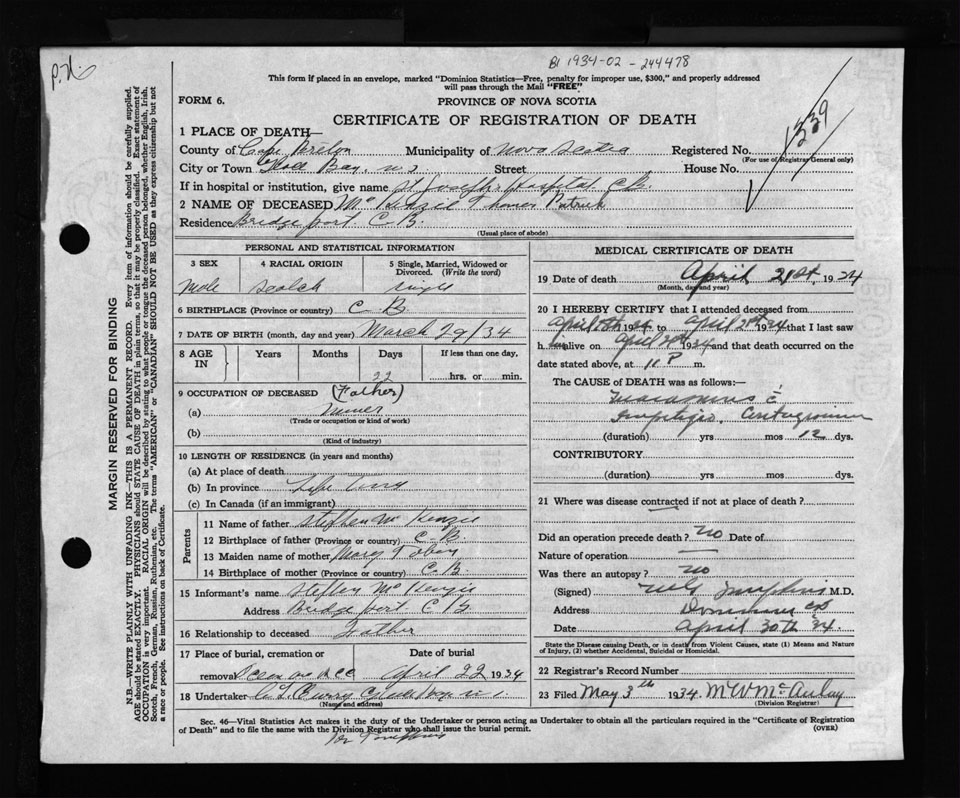 P.N.
B1 1934-02-244478
This form if placed in an envelope, marked "Dominion Statistics—Free, penalty for improper use, $300," and properly addressed
will pass through the Mail "FREE"
FORM 6.
PROVINCE OF NOVA SCOTIA
CERTIFICATE OF REGISTRATION OF DEATH
1339
1 PLACE OF DEATH—
County of Cape Breton Municipality of Nova Scotia Registered No.
(For use of Registrar General only)
City or Town Glace Bay. N S Street House No.
If in hospital or institution, give name St Joseph's Hospital C.B.
2 NAME OF DECEASED McKenzie Thomas Patrick
Residence Bridgeport C.B.
(Usual place of abode)
PERSONAL AND STATISTICAL INFORMATION
3 SEX
4 RACIAL ORIGIN
5 Single, Married, Widowed or Divorced. (Write the word)
Male Scotch single
6 BIRTHPLACE (Province or country) C B.
7 DATE OF BIRTH (month, day and year) March 29/34
8 AGE IN
Years Months Days If less than one day,
22 hrs. or min.
9 OCCUPATION OF DECEASED (Father)
(a) Miner
(Trade or occupation or kind of work)
(b)
(Kind of industry)
10 LENGTH OF RESIDENCE (in years and months)
(a) At place of death
(b) In province Life time
(c) In Canada (if an immigrant)
Parents
11 Name of father Stephen McKenzie
12 Birthplace of father (Province or country) C B.
13 Maiden name of mother Mary Tobin
14 Birthplace of mother (Province or country) C.B.
15 Informant's name McKenzie
Address Bridgeport C B
16 Relationship to deceased Father
17 Place of burial, cremation or removal
Date of burial
April 22 1934
18 Undertaker Curry Glace Bay N S
(Name and address)
MEDICAL CERTIFICATE OF DEATH
19 Date of death April 21st, 1934
(Month, day and year)
20 I HEREBY CERTIFY that I attended deceased from
April 1934 to April 21st 1934 that I last saw
h im alive on April 1934 and that death occurred on the
date stated above, at 11 P m.
The CAUSE of DEATH was as follows:—
Impetigo,
(duration) yrs mos 12 dys.
CONTRIBUTORY
(duration) yrs mos dys.
21 Where was disease contracted if not at place of death?
Did an operation precede death? no Date of
Nature of operation
Was there an autopsy? no
(Signed) M.D.
Address Dominion C B
Date April 30th 34.
State the Disease causing Death, or in death from Violent Causes, state (1) Means and Nature of Injury, (2) whether Accidental, Suicidal or Homicidal.
22 Registrar's Record Number
23 Filed May 3th 1934. McAulay
(Division Registrar)
Sec. 46—Vital Statistics Act makes it the duty of the Undertaker or person acting as Undertaker to obtain all the particulars required in the "Certificate of Registration
of Death" and to file the same with the Division Registrar who shall issue the burial permit.
(OVER)
MARGIN RESERVED FOR BINDING
N.B.—WRITE PLAINLY WITH UNFADING INK—THIS IS A PERMANENT RECORD. Every item of information should be carefully supplied.
AGE should be stated EXACTLY. PHYSICIANS should STATE CAUSE OF DEATH in plain terms, so that it may be properly classified. Exact statement of
OCCUPATION is very important. RACIAL ORIGIN will be described by stating to what people or tongue the deceased person belonged, whether English, Irish,
Scotch, French, German, Russian, Ruthenian, etc. The terms "AMERICAN" or "CANADIAN" SHOULD NOT BE USED as they express citizenship but not
a race or people. See instructions on back of Certificate.